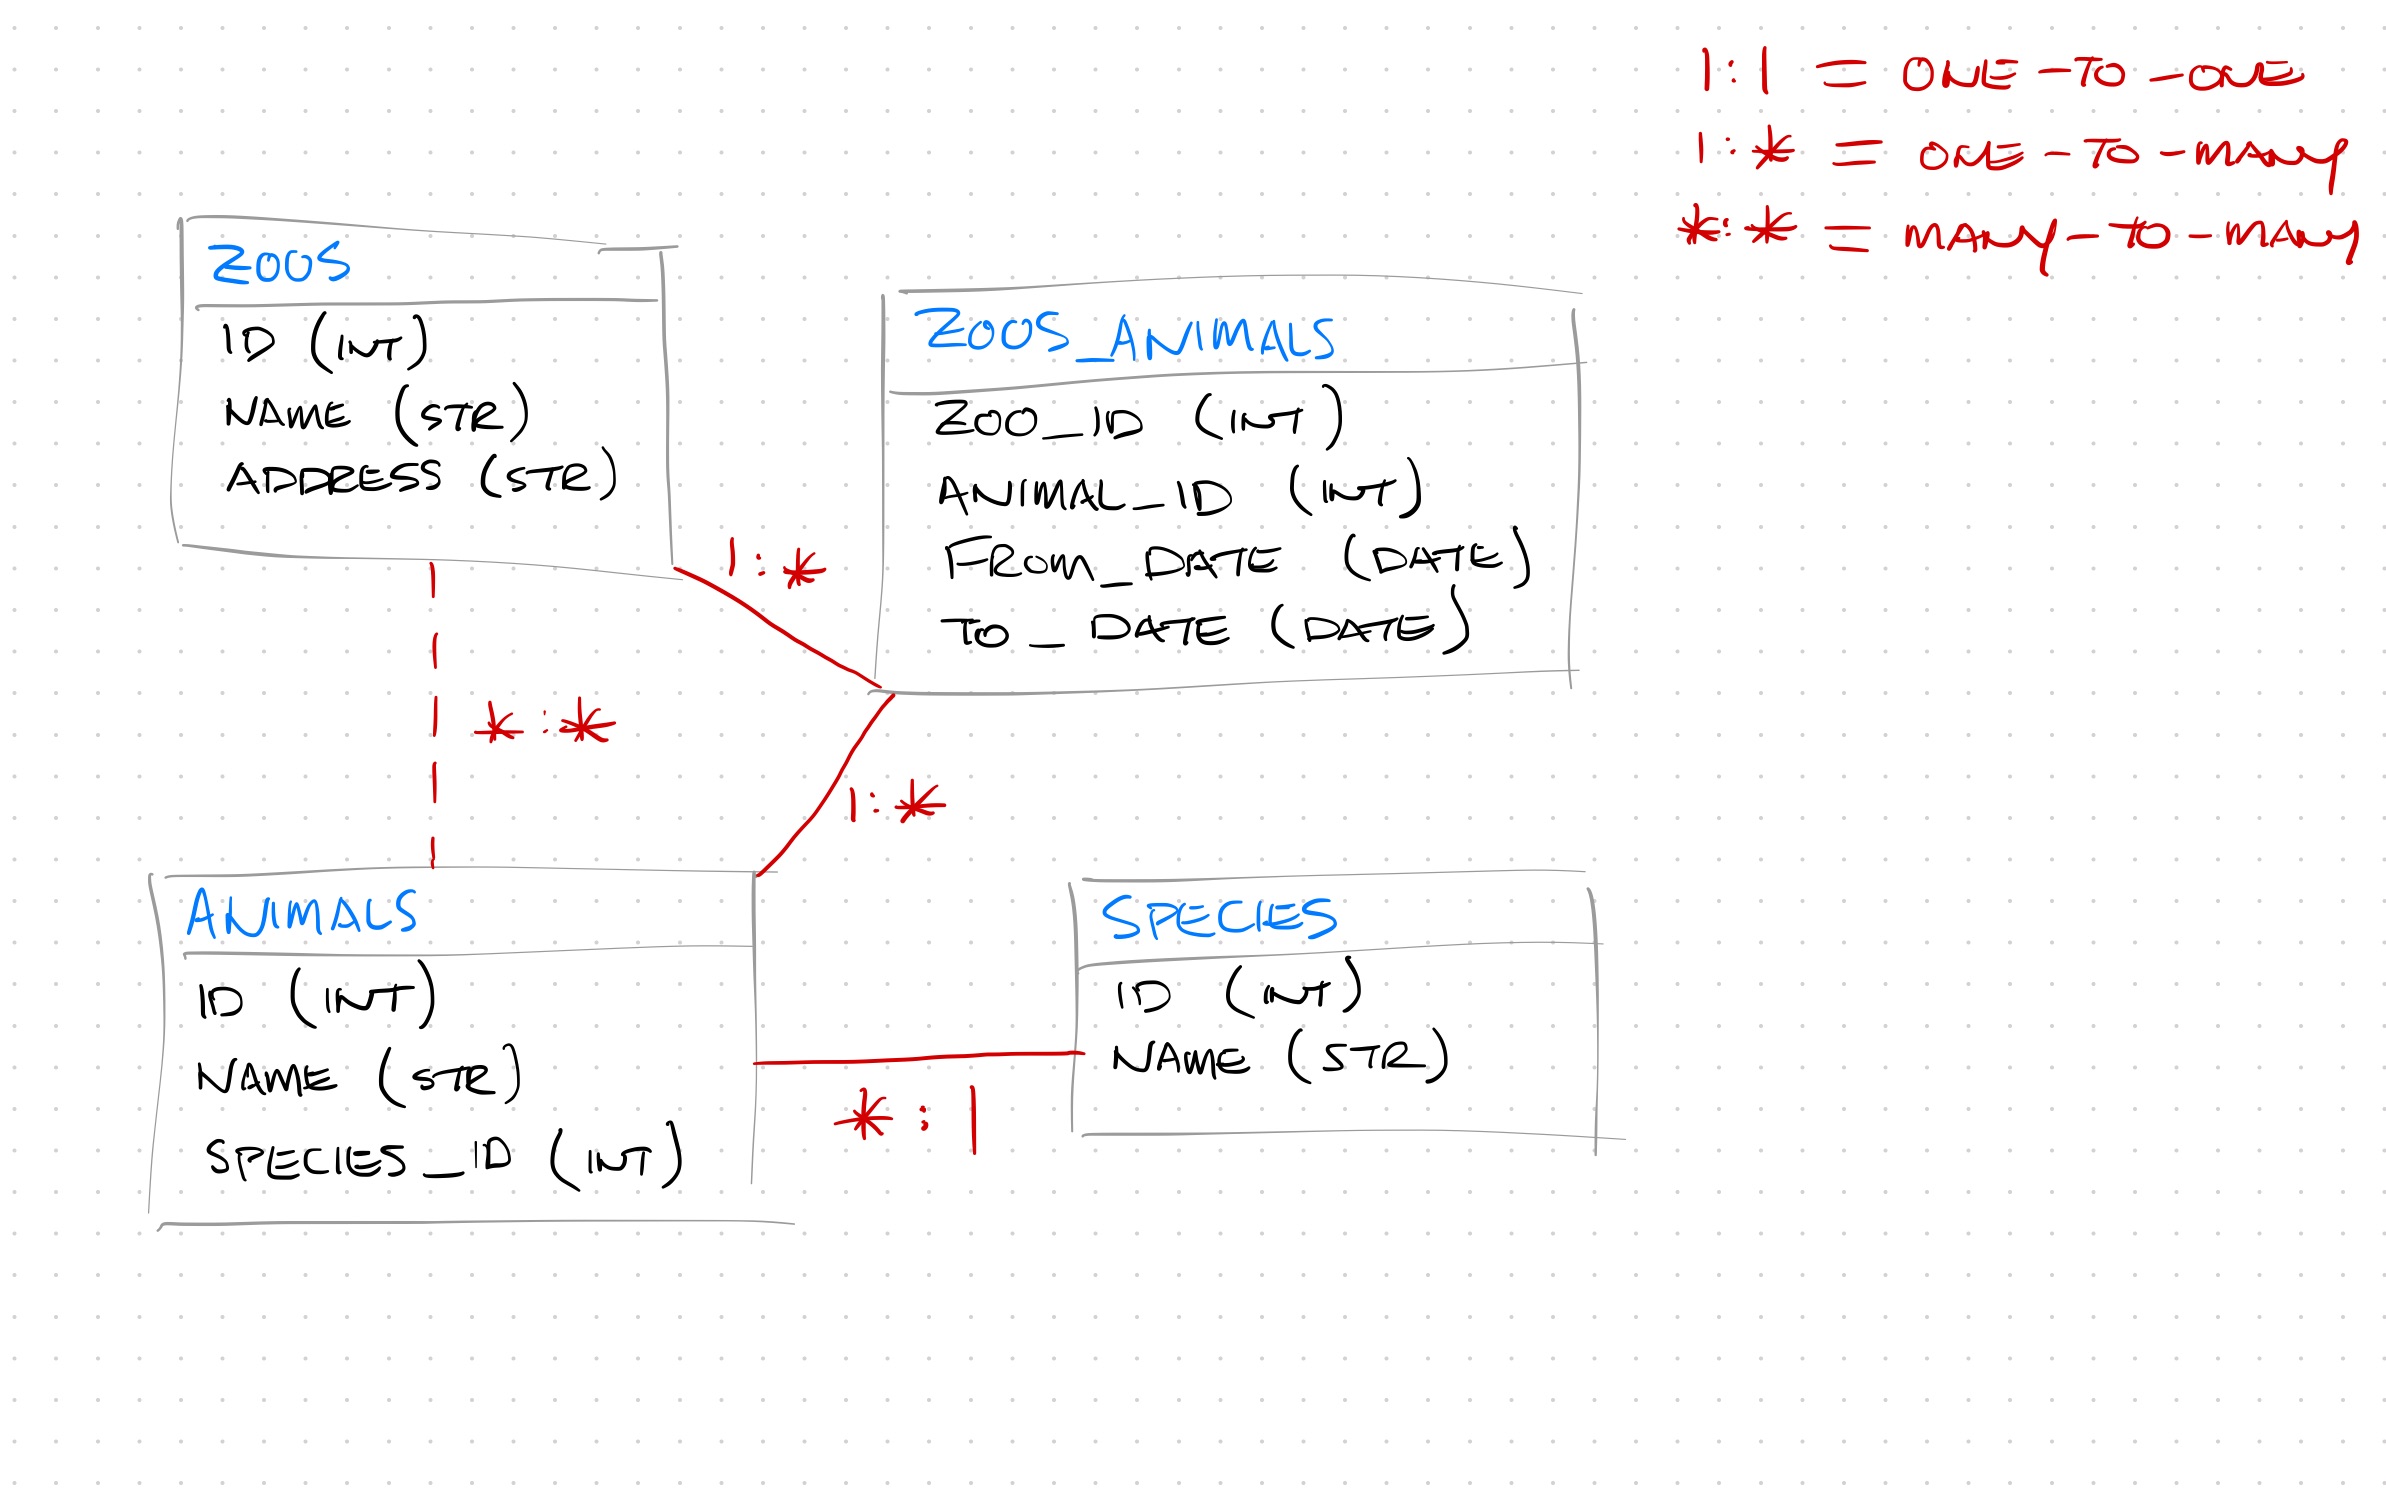 1:1 = ONE-TO-ONE
1:* = ONE-TO-MANY
*:* = MANY-TO-MANY
ZOOS
ID (INT)
NAME (STR)
ADDRESS (STR)
ZOOS_ANIMALS
ZOO_ID (INT)
ANIMAL_ID (INT)
FROM_DATE (DATE)
TO_DATE (DATE)
1:*
*:*
1:*
ANIMALS
ID (INT)
NAME (STR)
SPECIES_ID (INT)
*:1
SPECIES
ID (INT)
NAME (STR)